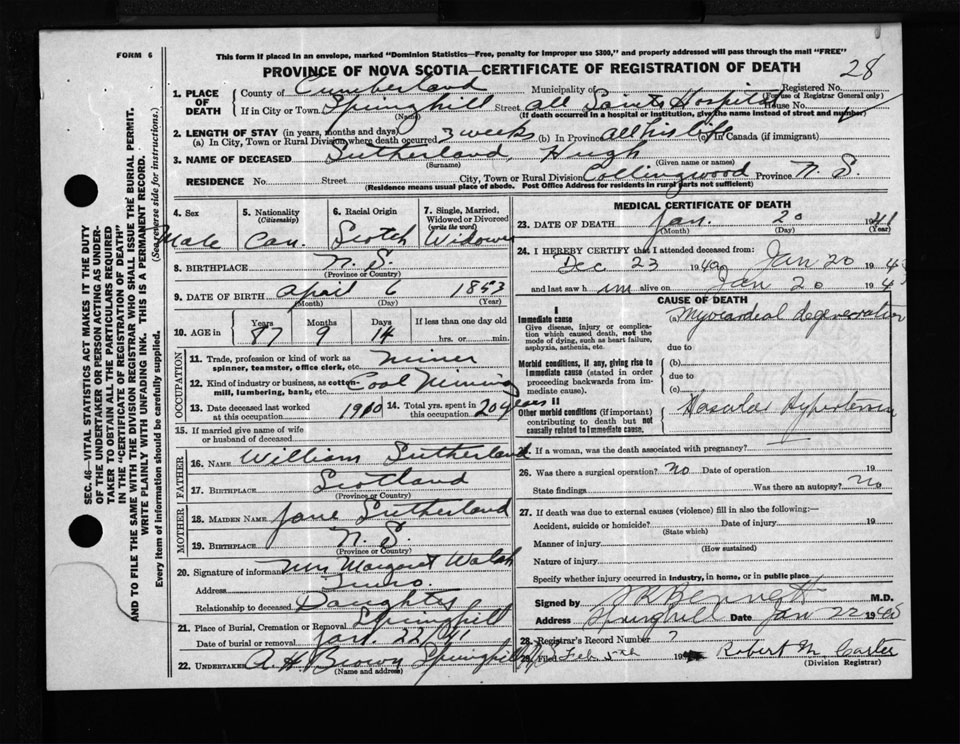 FORM 6
This form if placed in an envelope, marked "Dominion Statistics—Free, penalty for improper use $300," and properly addressed will pass through the mail "FREE"
PROVINCE OF NOVA SCOTIA—CERTIFICATE OF REGISTRATION OF DEATH
28
1. PLACE OF DEATH
County of Cumberland Municipality of Registered No.
(For use of Registrar General only)
If in City or Town Springhill Street All Saints Hospital House No.
(Name) (If death occurred in a hospital or institution, give the name instead of street and number)
2. LENGTH OF STAY (in years, months and days)
(a) In City, Town or Rural Division where death occurred 3 weeks (b) In Province all his life (c) In Canada (if immigrant)
3. NAME OF DECEASED Sutherland, Hugh
(Surname) (Given name or names)
RESIDENCE No. Street City, Town or Rural Division Collingwood Province N. S.
(Residence means usual place of abode. Post Office Address for residents in rural parts not sufficient)
4. Sex Male
5. Nationality (Citizenship) Can.
6. Racial Origin Scotch
7. Single, Married, Widowed or Divorced (write the word) Widower
8. BIRTHPLACE N. S.
(Province or Country)
9. DATE OF BIRTH April 6 1853
(Month) (Day) (Year)
10. AGE in Years 87 Months 9 Days 14 If less than one day old
hrs. or min.
OCCUPATION
11. Trade, profession or kind of work as spinner, teamster, office clerk, etc. miner
12. Kind of industry or business, as cotton mill, lumbering, bank, etc. Coal Mining
13. Date deceased last worked at this occupation 1910 14. Total yrs. spent in this occupation 20 years
15. If married give name of wife or husband of deceased
FATHER
16. NAME William Sutherland
17. BIRTHPLACE Scotland
(Province or Country)
MOTHER
18. MAIDEN NAME Jane Sutherland
19. BIRTHPLACE N. S.
(Province or Country)
20. Signature of informant Mrs Margaret Walsh
Address Truro.
Relationship to deceased Daughter
21. Place of Burial, Cremation or Removal Springhill
Date of burial or removal Jan. 22/41
22. UNDERTAKER A H Brown Springhill
(Name and address)
MEDICAL CERTIFICATE OF DEATH
23. DATE OF DEATH Jan. 20 1941
(Month) (Day) (Year)
24. I HEREBY CERTIFY that I attended deceased from:
Dec 23 1940 Jan 20 194
and last saw h im alive on Jan 20 194
CAUSE OF DEATH
I
Immediate cause
Give disease, injury or complication which caused death, not the mode of dying, such as heart failure, asphyxia, asthenia, etc.
(a) Myocardial degeneration
due to
Morbid conditions, if any, giving rise to immediate cause (stated in order proceeding backwards from immediate cause).
(b)
due to
(c)
II
Other morbid conditions (if important) contributing to death but not causally related to immediate cause.
Vascular Hypertension
25. If a woman, was the death associated with pregnancy?
26. Was there a surgical operation? No Date of operation 19
State findings Was there an autopsy? No
27. If death was due to external causes (violence) fill in also the following:—
Accident, suicide or homicide? Date of injury 19
(State which)
Manner of injury
(How sustained)
Nature of injury
Specify whether injury occurred in industry, in home, or in public place
Signed by Bennett M.D.
Address Springhill Date Jan 22 19
28. Registrar's Record Number 7
29. Filed Feb 5th 19 Robert M. Carter
(Division Registrar)
SEC. 46—VITAL STATISTICS ACT MAKES IT THE DUTY
OF THE UNDERTAKER OR PERSON ACTING AS UNDER-
TAKER TO OBTAIN ALL THE PARTICULARS REQUIRED
IN THE "CERTIFICATE OF REGISTRATION OF DEATH"
AND TO FILE THE SAME WITH THE DIVISION REGISTRAR WHO SHALL ISSUE THE BURIAL PERMIT.
WRITE PLAINLY WITH UNFADING INK. THIS IS A PERMANENT RECORD.
Every item of information should be carefully supplied. (See reverse side for instructions.)